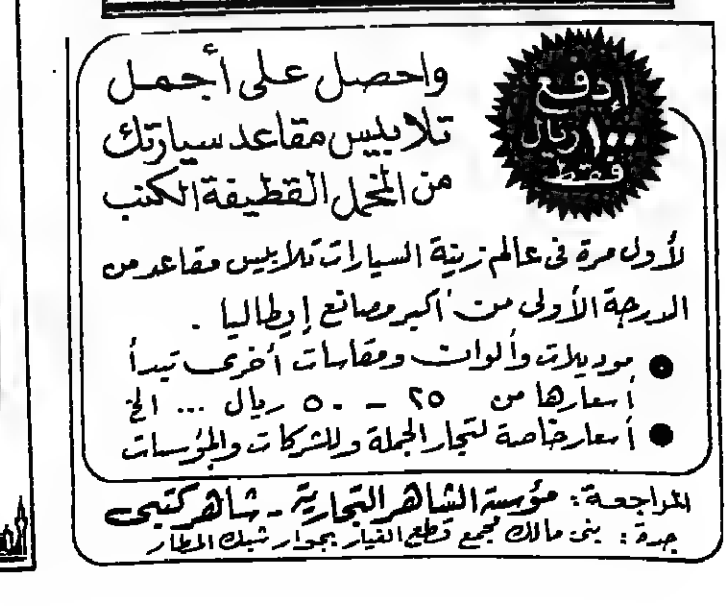 إدفع
١٠٠ ريال
فقط
واحصل على أجمل
تلابيس مقاعد سيارتك
من المخمل القطيفة الكنب
لأول مرة في عالم زينة السيارات تلابيس مقاعد من
الدرجة الأولى من أكبر مصانع إيطاليا .
● موديلات وألوان ومقاسات أخرى تبدأ
أسعارها من ٢٥ - ٥٠ ريال ... الخ
● أسعار خاصة لتجار الجملة وللشركات والمؤسسات
المراجعة : مؤسسة الشاهر التجارية - شاهر كتبي
جدة : بني مالك مجمع قطع الغيار بجوار شبك المطار